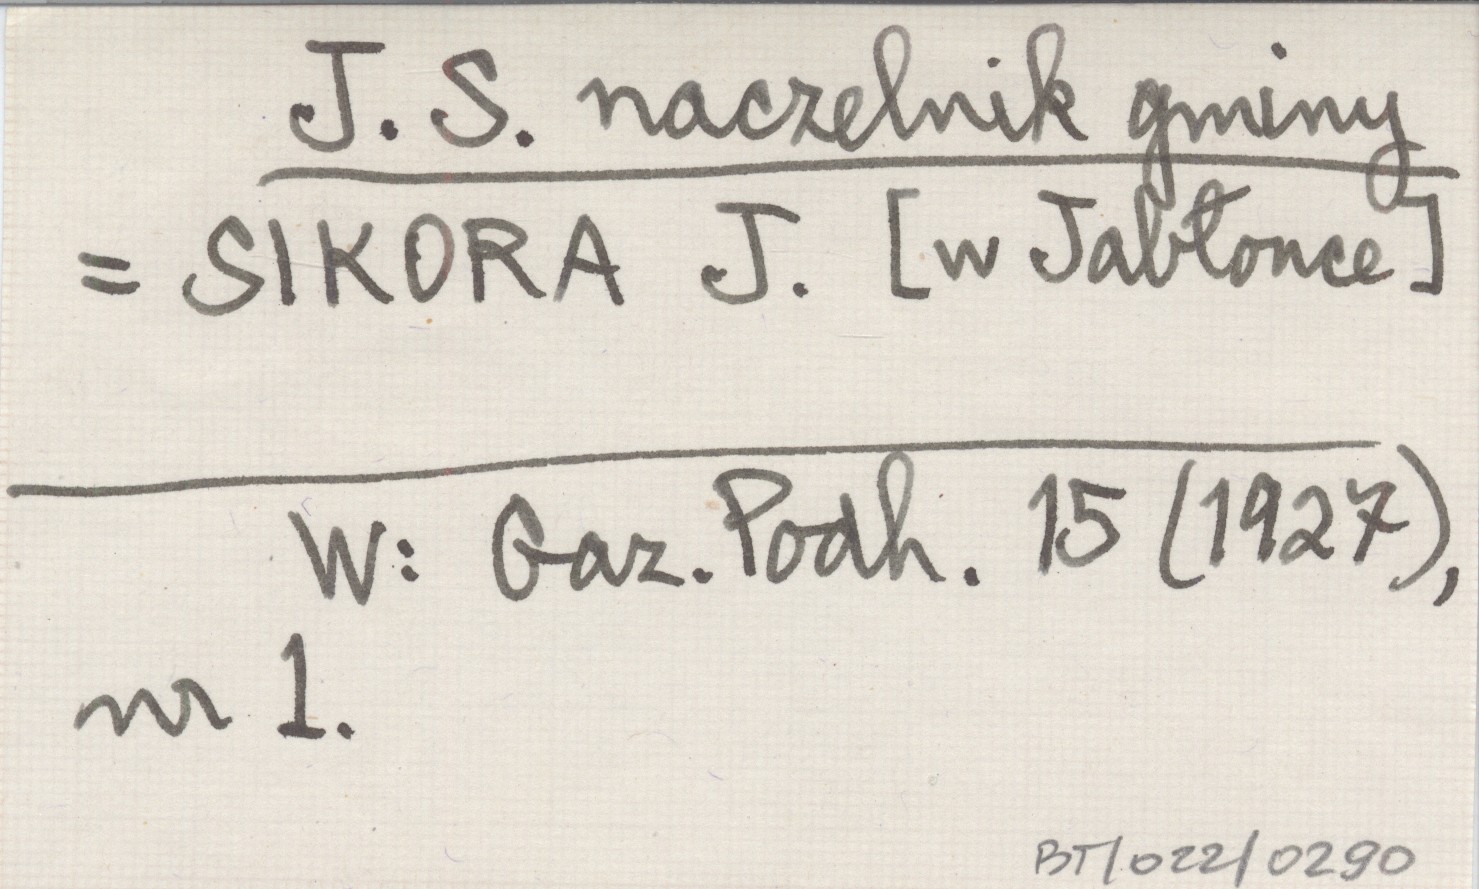 J. S. naczelnik gminy
= SIKORA J. [w Jabłonce]
W: Gaz. Podh. 15 (1927),
nr 1.
BT/022/0290